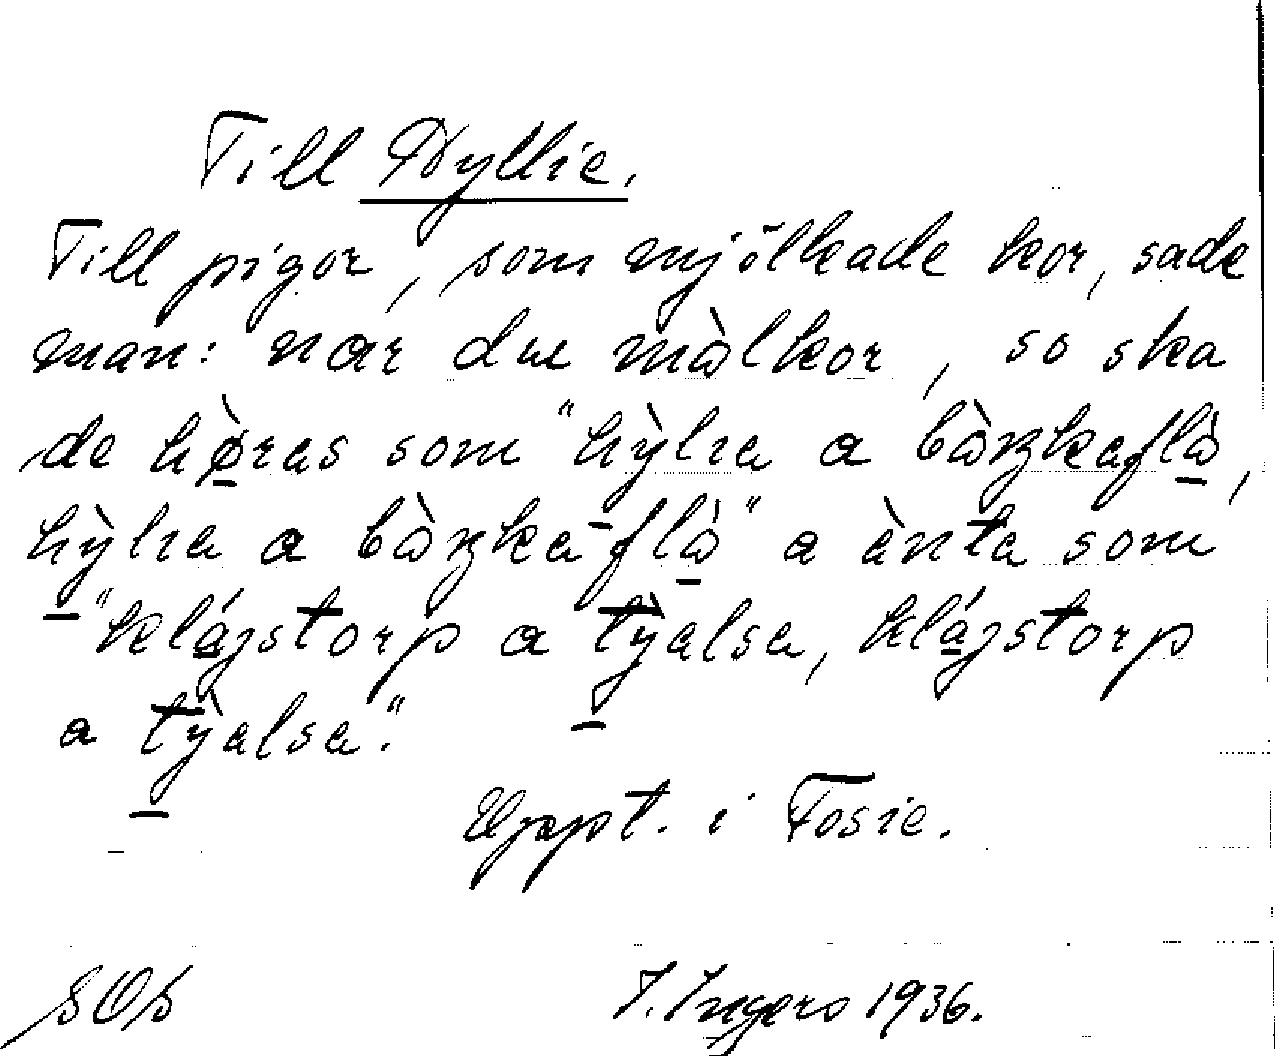 Till Hyllie.
Till pigor, som mjölkade kor, sade
man: nær du mɷ̀lkor, so ska
de hø̠̀ras som "hỳlıa a bɷ̀ʀkaflɷ̠̀,
hỳlıa a bɷ̀ʀkaflɷ̠̀" a ànta som
"klá̠jstorp a tỳalsa, klá̠jstorp
a tỳalsa."
Uppt. i Fosie.
SOS
I. Ingers 1936.